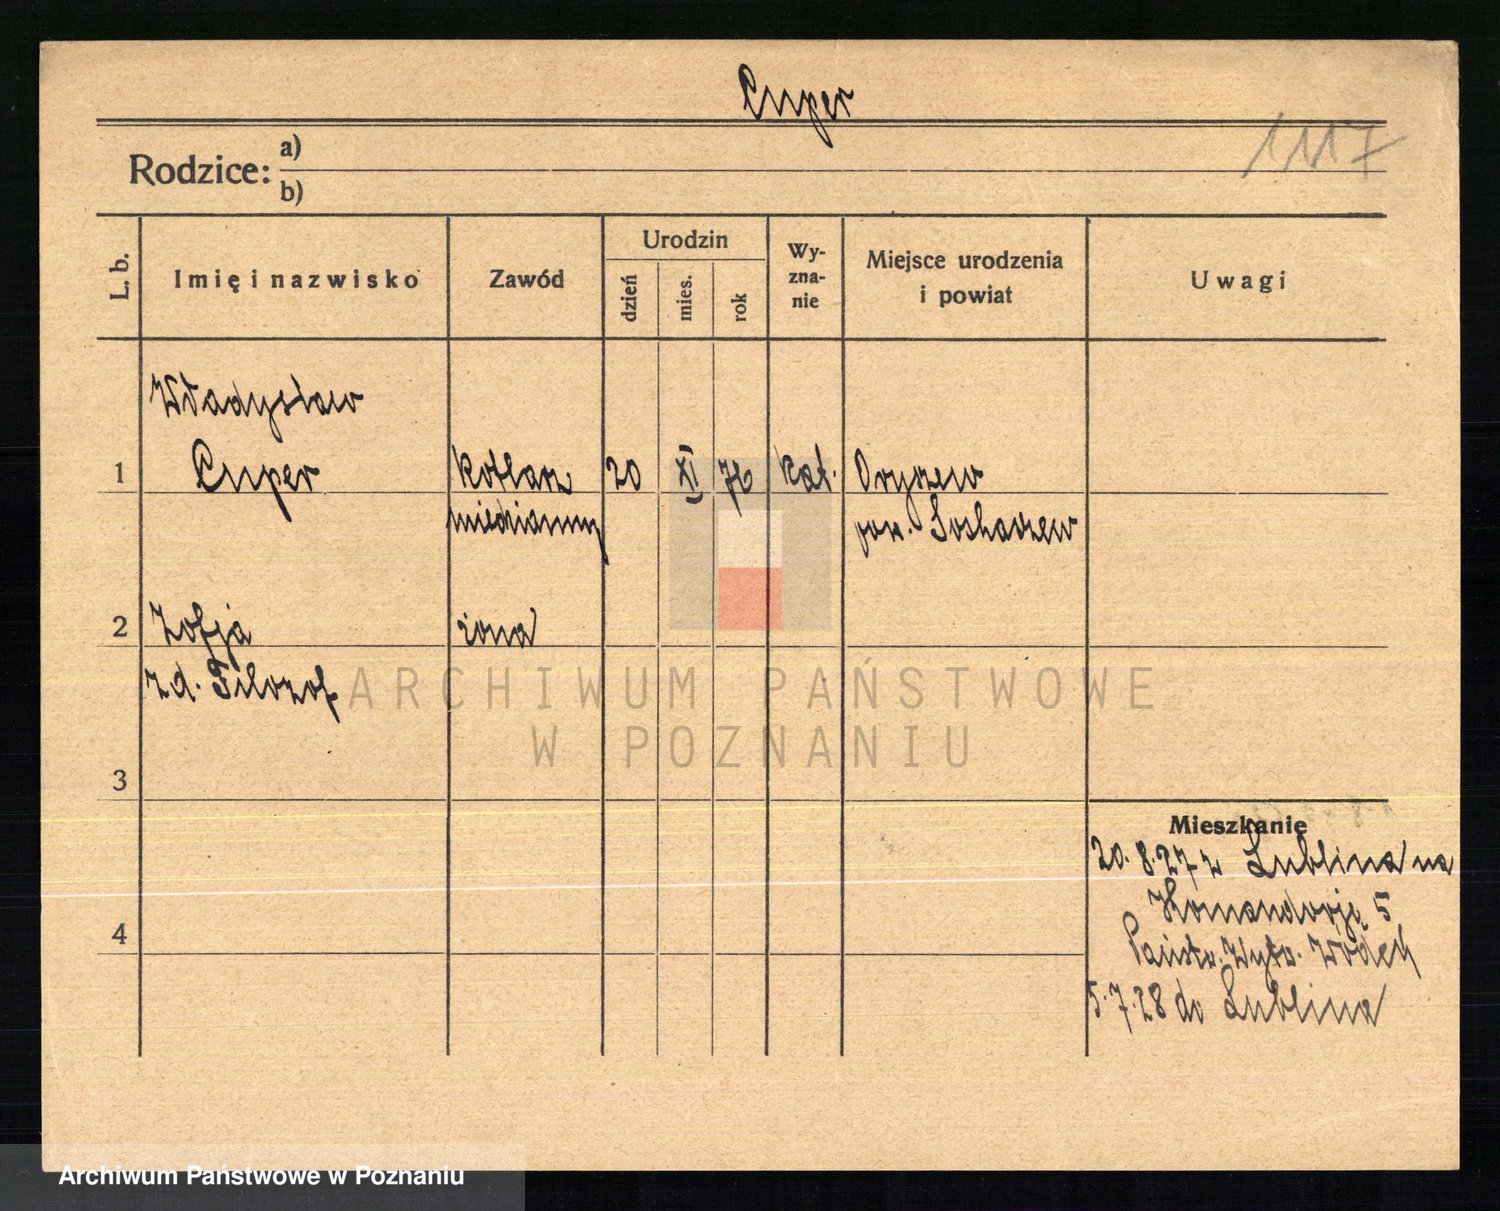 Cuper
1117
Rodzice: a)
b)
L. b.
Imię i nazwisko
Zawód
Urodzin
dzień
mies.
rok
Wy-
zna-
nie
Miejsce urodzenia
i powiat
Uwagi
Władysław
1 Cuper kotlarz 20 XI 76 kat. Oryszew
miedziany pow. Sochaczew
2 Zofja żona
z d. Filozof
ARCHIWUM PAŃSTWOWE
W POZNANIU
3
Mieszkanie
20.8.27 z Lublina na
Komandorją 5
4
Państw. Wytw. Wódek
5.7.28 do Lublina
Archiwum Państwowe w Poznaniu